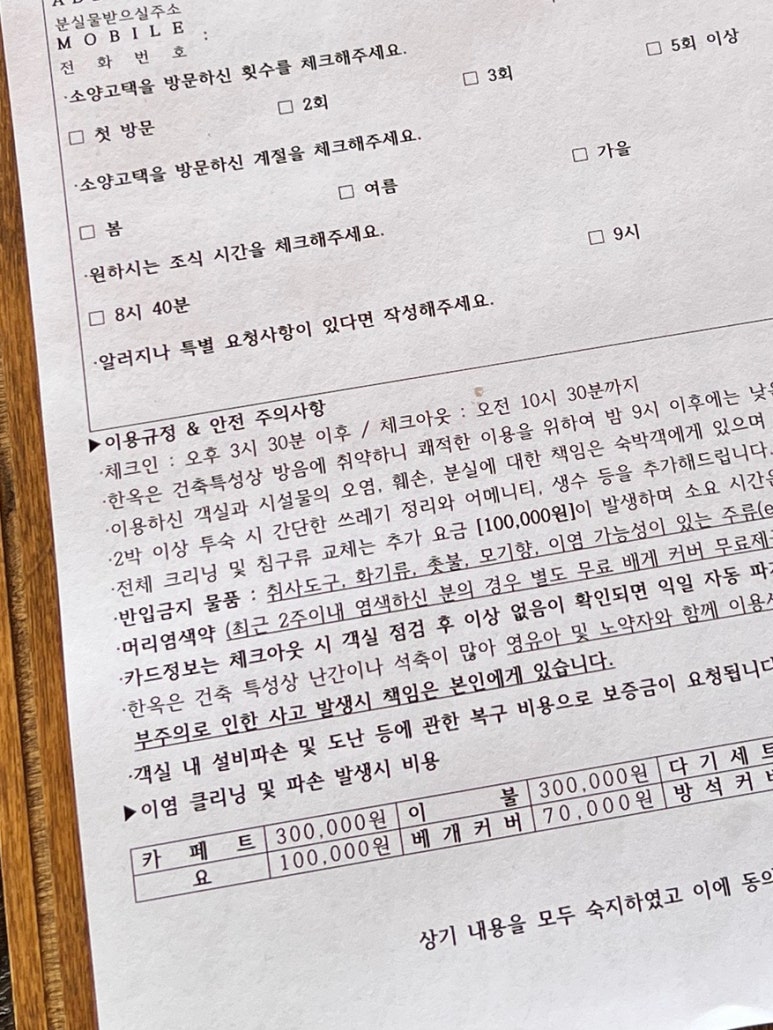 분실물받으실주소
MOBILE
전 화 번 호 :
·소양고택을 방문하신 횟수를 체크해주세요.
□ 첫 방문 □ 2회 □ 3회 □ 5회 이상
·소양고택을 방문하신 계절을 체크해주세요.
□ 봄 □ 여름 □ 가을
·원하시는 조식 시간을 체크해주세요.
□ 8시 40분 □ 9시
·알러지나 특별 요청사항이 있다면 작성해주세요.
▶이용규정 & 안전 주의사항
·체크인 : 오후 3시 30분 이후 / 체크아웃 : 오전 10시 30분까지
·한옥은 건축특성상 방음에 취약하니 쾌적한 이용을 위하여 밤 9시 이후에는
·이용하신 객실과 시설물의 오염, 훼손, 분실에 대한 책임은 숙박객에게 있으며
·2박 이상 투숙 시 간단한 쓰레기 정리와 어메니티, 생수 등을 추가해드립니다.
·전체 크리닝 및 침구류 교체는 추가 요금 [100,000원]이 발생하며 소요 시간은
·반입금지 물품 : 취사도구, 화기류, 촛불, 모기향, 이염 가능성이 있는 주류(e
·머리염색약 (최근 2주이내 염색하신 분의 경우 별도 무료 배게 커버 무료제
·카드정보는 체크아웃 시 객실 점검 후 이상 없음이 확인되면 익일 자동 파
·한옥은 건축 특성상 난간이나 석축이 많아 영유아 및 노약자와 함께 이용
부주의로 인한 사고 발생시 책임은 본인에게 있습니다.
·객실 내 설비파손 및 도난 등에 관한 복구 비용으로 보증금이 요청됩니다
▶이염 클리닝 및 파손 발생시 비용
카 페 트 300,000원 이 불 300,000원 다 기 세 트
요 100,000원 베 개 커 버 70,000원 방 석 커 버
상기 내용을 모두 숙지하였고 이에 동의